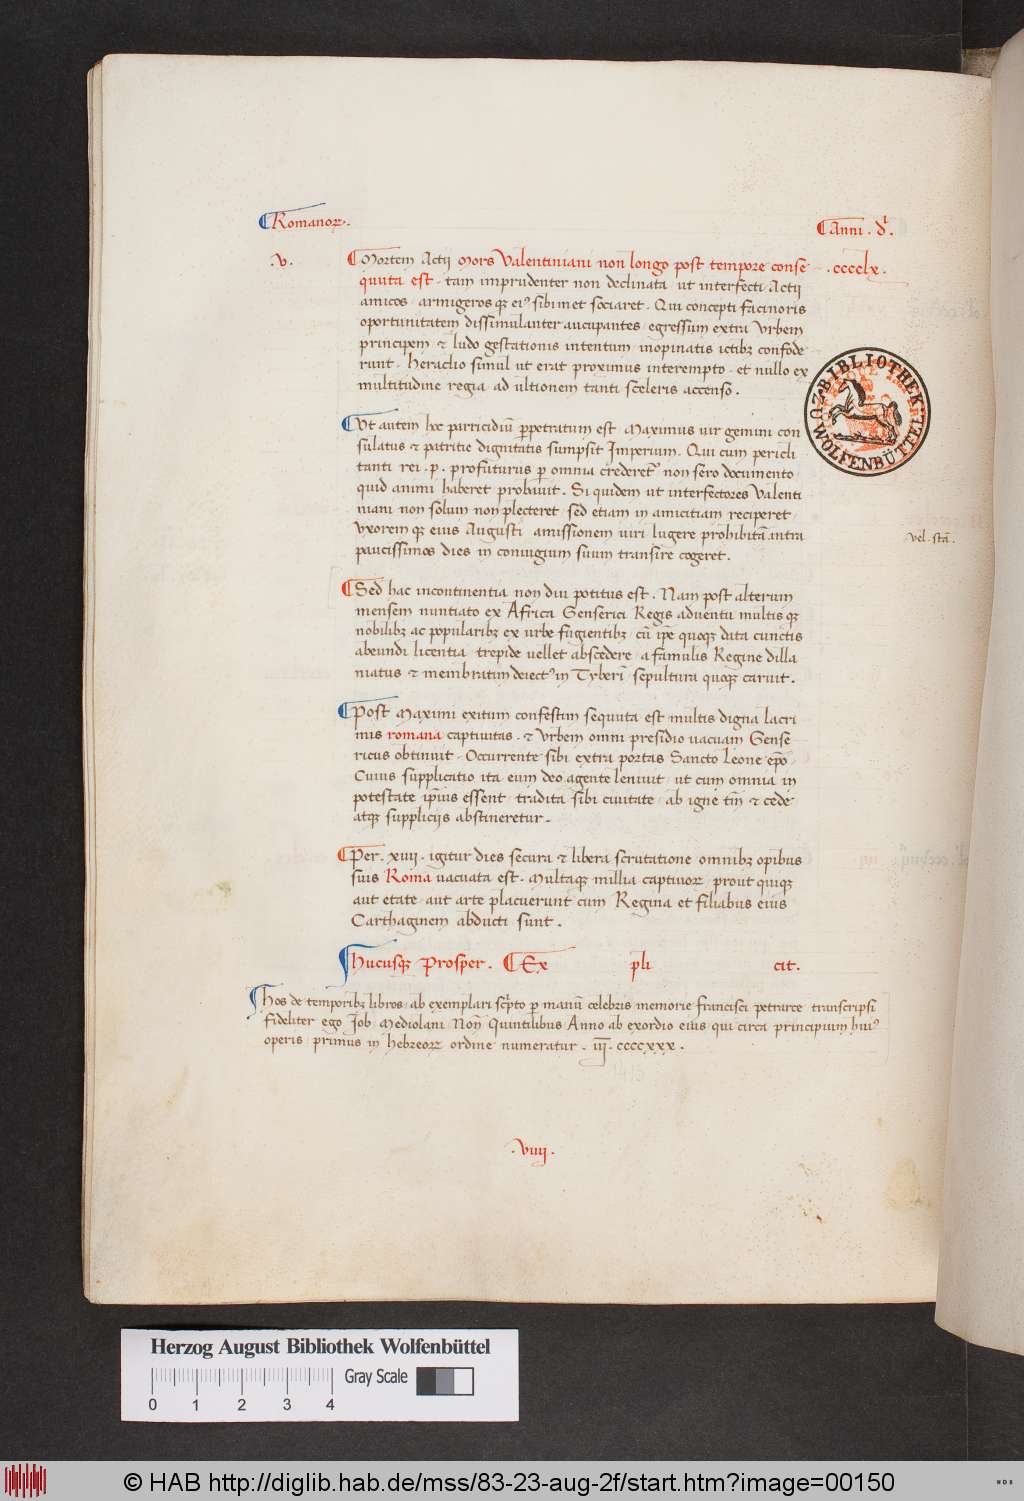 Romanoꝝ.
Anni . dⁱ.
.v.
Mortem Actii Mors Valentiniani non longo post tempore conse
. ccccLx .
quuta est . tam imprudenter non declinata ut interfecti Actii
amicos . armigeros qꝫ eiꝰ sibimet sociaret . Qui concepti facinoris
oportunitatem dissimulanter aucupantes . egressum extra Vrbem
principem & ludo gestationis intentum . inopinatis ictibꝫ confode
runt . Heraclio simul ut erat proximus interempto . et nullo ex
multitudine regia ad ultionem tanti sceleris accenso .
Vt autem hec parricidiū ꝑpetratum est . Maximus uir gemini con
sulatus & patritie dignitatis sumpsit Imperium . Qui cum pericli
tanti rei . p . profuturus ꝑ omnia crederetᷣ non sero documento
quid animi haberet probauit . Si quidem ut interfectores Valenti
niani non solum non plecteret . sed etiam in amicitiam reciperet .
Vxorem qꝫ eius Augusti amissionem uiri lugere prohibitā intra
paucissimos dies in coniugium suum transire cogeret .
vel . stā .
Sed hac incontinentia non diu potitus est . Nam post alterum
mensem nuntiato ex Africa Genserici Regis aduentu multis qꝫ
nobilibꝫ ac popularibꝫ ex urbe fugientibꝫ . cū ip̄e quoqꝫ data cunctis
abeundi licentia . trepide uellet abscedere . a famulis Regine dilla
niatus & membratim deiectꝰ in Tyberī . sepultura quoqꝫ caruit .
Post Maximi exitum confestim sequuta est multis digna lacri
mis romana captiuitas . & Vrbem omni presidio uacuam Gense
ricus obtinuit . Occurrente sibi extra portas Sancto Leone ep̄o
Cuius supplicatio ita eum deo agente leniuit . ut cum omnia in
potestate ip̄ius essent . tradita sibi ciuitate . ab igne tn̄ & cede
atqꝫ suppliciis abstineretur .
Per . xiiii . igitur dies secura & libera scrutatione omnibꝫ opibus
suis Roma uacuata est . Multaqꝫ millia captiuoꝝ . prout quiqꝫ
aut etate . aut arte placuerunt cum Regina et filiabus eius
Carthaginem abducti sunt .
Hucusqꝫ Prosper . Ex pli cit .
Hos de temporibꝫ libros . ab exemplari sc̄pto ꝑ manū celebris memorie Francisci petrarce transcripsi
fideliter ego Joħ Mediolani Noñ Quintilibus Anno ab exordio eius qui circa principium huiꝰ
operis . primus in hebreoꝝ ordine numeratur . iij̄ . ccccxxx .
1413
. viiij .
BIBLIOTHEK
WOLFENBÜTTEL
Herzog August Bibliothek Wolfenbüttel
Gray Scale
0 1 2 3 4
© HAB http://diglib.hab.de/mss/83-23-aug-2f/start.htm?image=00150